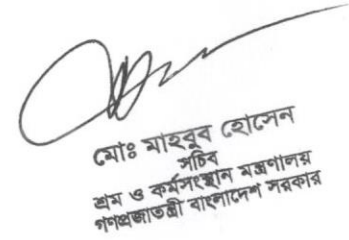 মোঃ মাহবুব হোসেন
সচিব
শ্রম ও কর্মসংস্থান মন্ত্রণালয়
গণপ্রজাতন্ত্রী বাংলাদেশ সরকার